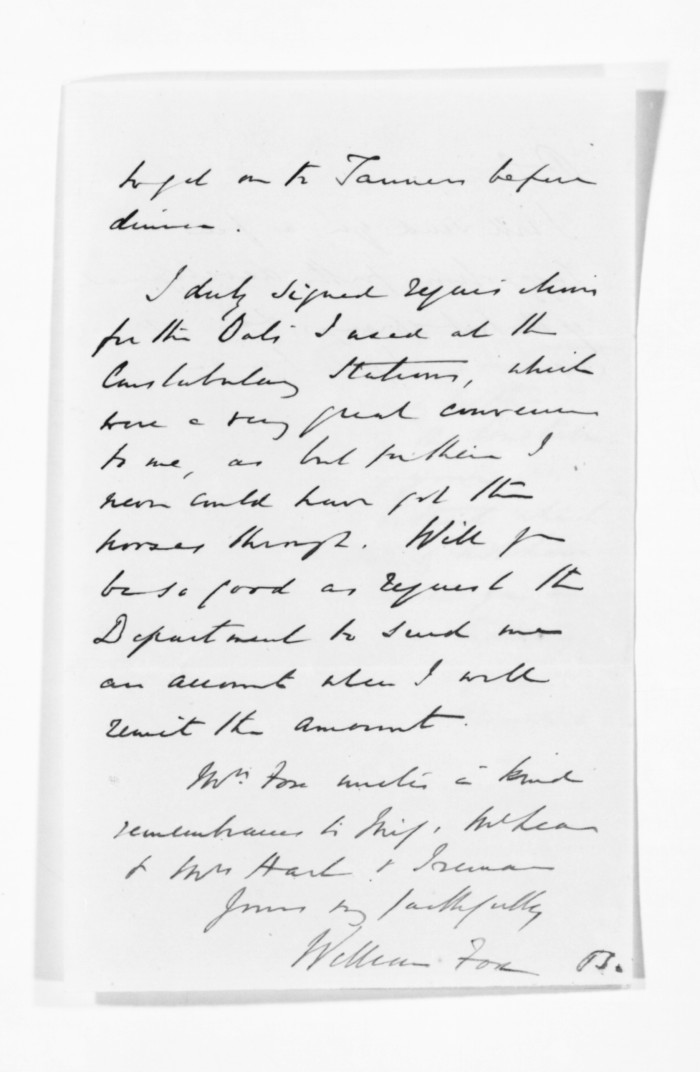 to get on to Tanners before
dinner.
I duly signed requisitions
for the Oats I used at the
Constabulary Stations, which
were a very great convenience
to me, as but for them I
never could have got the
horses through. Will you
be so good as request the
Department to send me
an account when I will
remit the amount.
Mrs Fox unites in kind
remembrances to Miss McLean
& Mrs Hart &
Yours very faithfully
William Fox